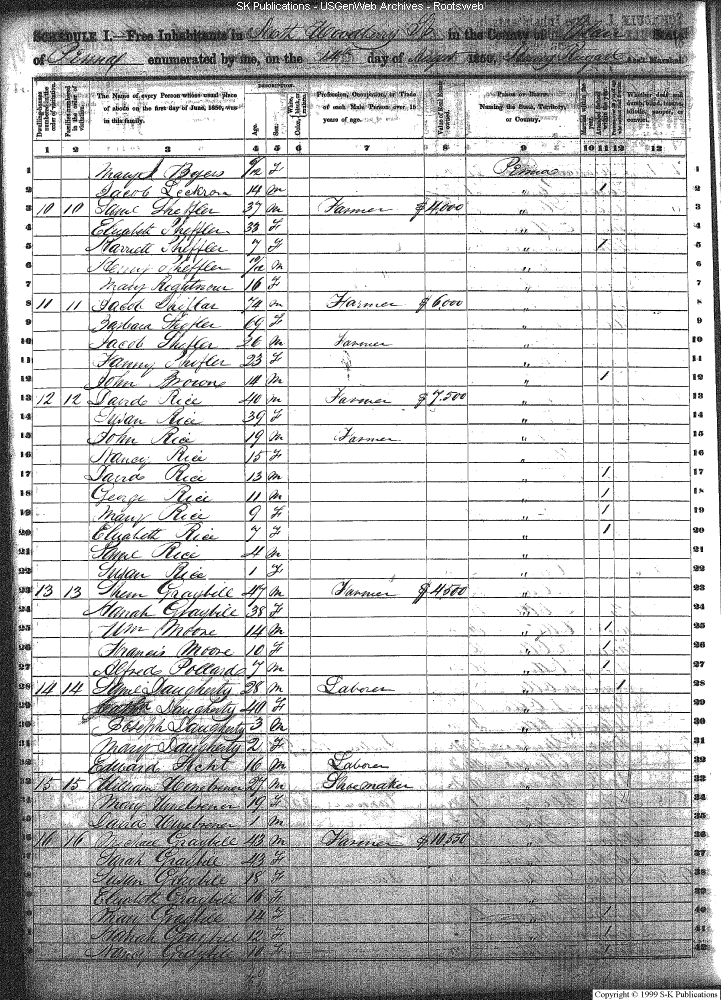 SK Publications - USGenWeb Archives - Rootsweb
SCHEDULE I.—Free Inhabitants in North Woodberry in the County of Blair State
of Penna enumerated by me, on the 14th day of August 1850. Ass't Marshal.
Dwelling-houses numbered in the order of visitation. Families numbered in the order of visitation. The Name of every Person whose usual place of abode on the first day of June, 1850, was in this family. DESCRIPTION. Age. Sex. Color Profession, Occupation, or Trade of each Male Person over 15 years of age. Value of Real Estate owned. Place of Birth. Naming the State, Territory, or Country. Whether deaf and dumb, blind, insane, idiotic, pauper, or convict.
1 2 3 4 5 6 7 8 9 10 11 12 13
1 Mary Boyers 9/12 F Penna 1
2 Jacob Leckron 14 M " 1 2
3 10 10 Saml Sheffler 37 M Farmer $4,000 " 3
4 Elizabeth Sheffler 33 F " 4
5 Harriett Sheffler 7 F " 1 5
6 Henry Sheffler /12 M " 6
7 Mary Rightnour 16 F " 7
8 11 11 Jacob Shiflar 74 M Farmer $6000 " 8
9 Barbara Shifler 69 F " 9
10 Jacob Shifler 26 M Farmer " 10
11 Fanny Shifler 23 F " 11
12 John Browne 14 M " 1 12
13 12 12 David Rice 40 M Farmer $7,500 " 13
14 Susan Rice 39 F " 14
15 John Rice 19 M Farmer " 15
16 Nancy Rice 15 F " 16
17 David Rice 13 M " 1 17
18 George Rice 11 M " 1 18
19 Mary Rice 9 F " 1 19
20 Elizabeth Rice 7 F " 1 20
21 Saml Rice 4 M " 21
22 Susan Rice 1 F " 22
23 13 13 Shem Graybill 47 M Farmer $4500 " 23
24 Hanah Graybill 38 F " 24
25 Wm Moore 14 M " 1 25
26 Francis Moore 10 F " 1 26
27 Alfred Pollard 7 M " 1 27
28 14 14 Saml Daugherty 28 M Laborer " 1 28
29 Daugherty 40 F " 29
30 Joseph Daugherty 3 M " 30
31 Mary Daugherty 2 F " 31
32 Edward 16 M Laborer " 32
33 15 15 William Winebrener 27 M Shoemaker " 33
Mary Winebrener 19 F " 34
David Winebrener 1 M " 35
16 16 Michael Graybill 43 M Farmer $10,550 " 36
Sarah Graybill 43 F " 37
Susan Graybill 18 F " 38
Elizabeth Graybill 16 F " 39
Mary Graybill 14 F " 1 40
Hanah Graybill 12 F " 1 41
Nancy Graybill 10 F " 1 42
Copyright © 1999 S-K Publications